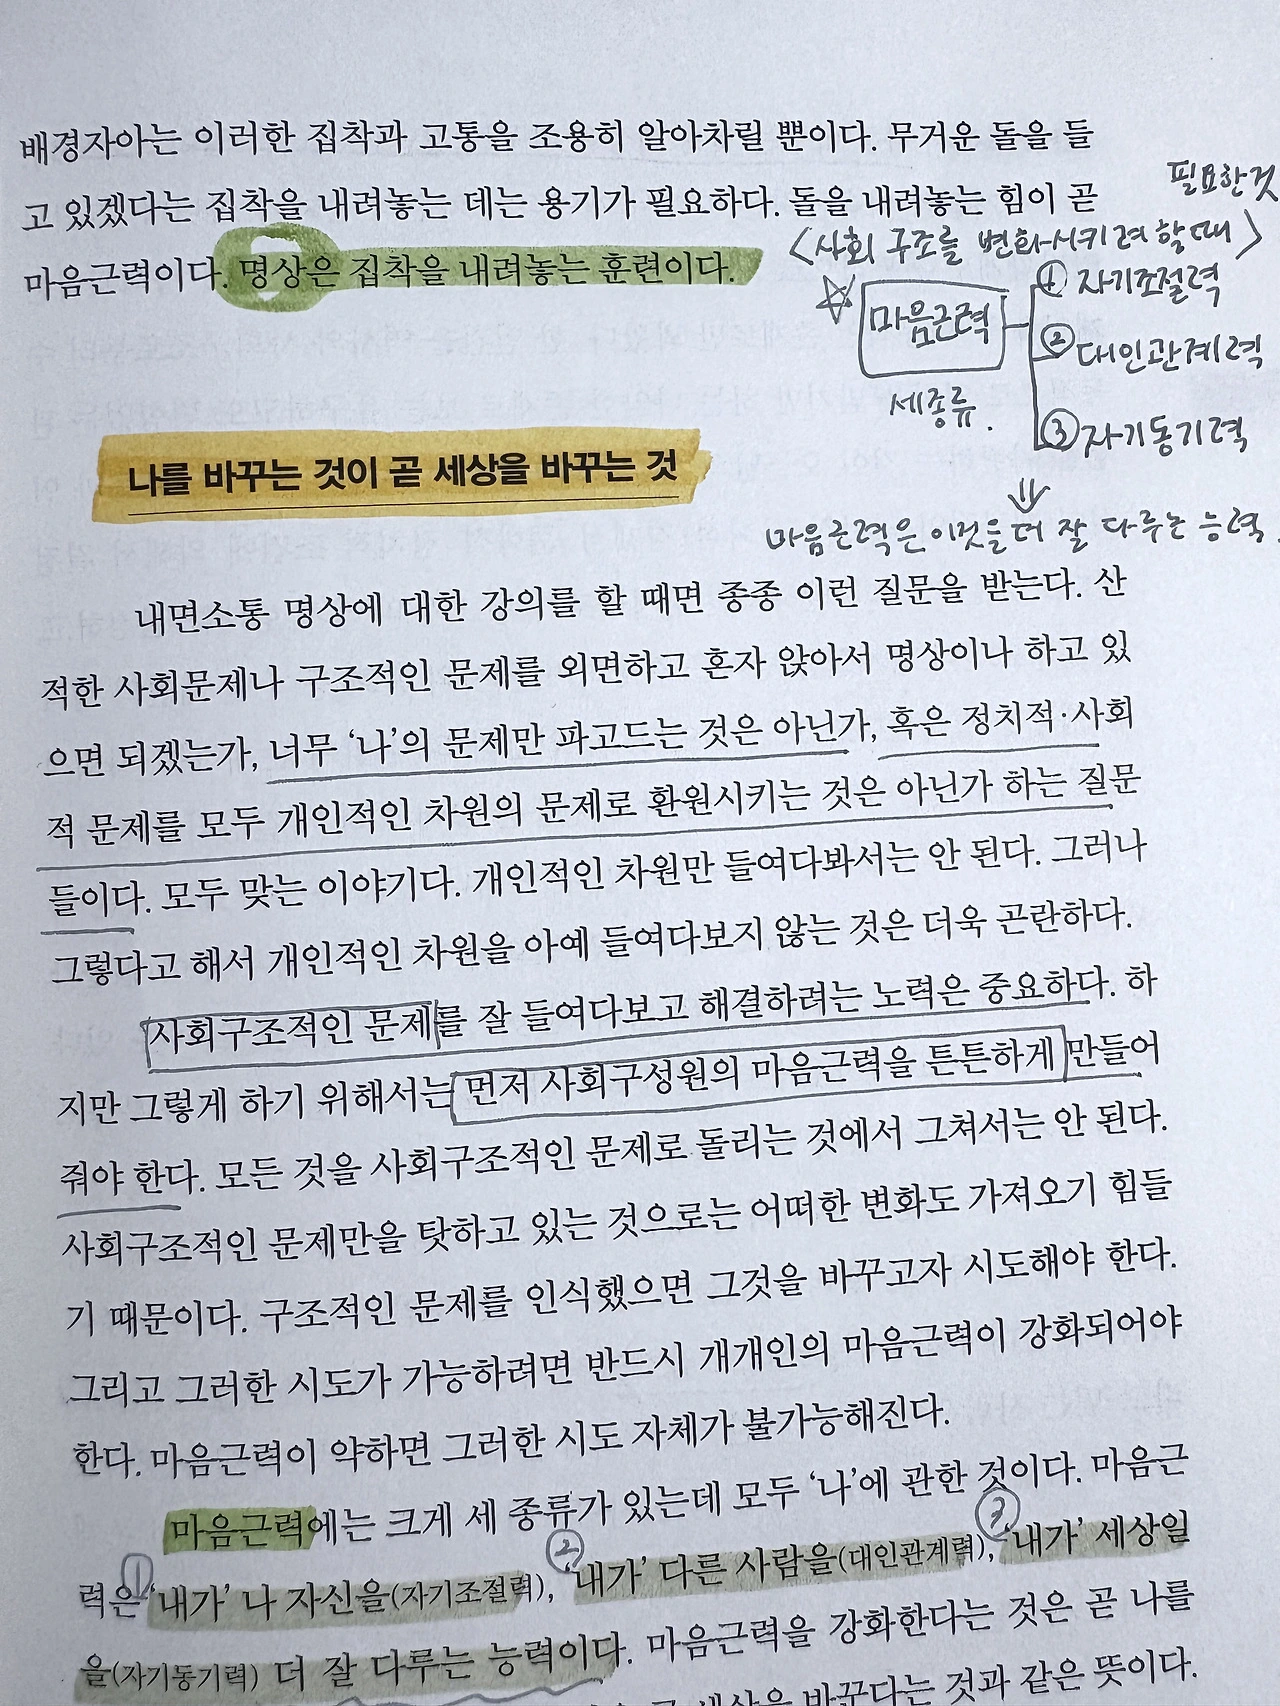 배경자아는 이러한 집착과 고통을 조용히 알아차릴 뿐이다. 무거운 돌을 들
고 있겠다는 집착을 내려놓는 데는 용기가 필요하다. 돌을 내려놓는 힘이 곧
마음근력이다. 명상은 집착을 내려놓는 훈련이다.
필요한것
<사회 구조를 변화시키려 할때>
마음근력
세종류.
① 자기조절력
② 대인관계력
③ 자기동기력
마음근력은 이것들 더 잘 다루는 능력.
나를 바꾸는 것이 곧 세상을 바꾸는 것
내면소통 명상에 대한 강의를 할 때면 종종 이런 질문을 받는다. 산
적한 사회문제나 구조적인 문제를 외면하고 혼자 앉아서 명상이나 하고 있
으면 되겠는가, 너무 ‘나’의 문제만 파고드는 것은 아닌가, 혹은 정치적·사회
적 문제를 모두 개인적인 차원의 문제로 환원시키는 것은 아닌가 하는 질문
들이다. 모두 맞는 이야기다. 개인적인 차원만 들여다봐서는 안 된다. 그러나
그렇다고 해서 개인적인 차원을 아예 들여다보지 않는 것은 더욱 곤란하다.
사회구조적인 문제를 잘 들여다보고 해결하려는 노력은 중요하다. 하
지만 그렇게 하기 위해서는 먼저 사회구성원의 마음근력을 튼튼하게 만들어
줘야 한다. 모든 것을 사회구조적인 문제로 돌리는 것에서 그쳐서는 안 된다.
사회구조적인 문제만을 탓하고 있는 것으로는 어떠한 변화도 가져오기 힘들
기 때문이다. 구조적인 문제를 인식했으면 그것을 바꾸고자 시도해야 한다.
그리고 그러한 시도가 가능하려면 반드시 개개인의 마음근력이 강화되어야
한다. 마음근력이 약하면 그러한 시도 자체가 불가능해진다.
마음근력에는 크게 세 종류가 있는데 모두 ‘나’에 관한 것이다. 마음근
① ② ③
력은 ‘내가’ 나 자신을(자기조절력), ‘내가’ 다른 사람을(대인관계력), ‘내가’ 세상일
을(자기동기력) 더 잘 다루는 능력이다. 마음근력을 강화한다는 것은 곧 나를
세상을 바꾼다는 것과 같은 뜻이다.